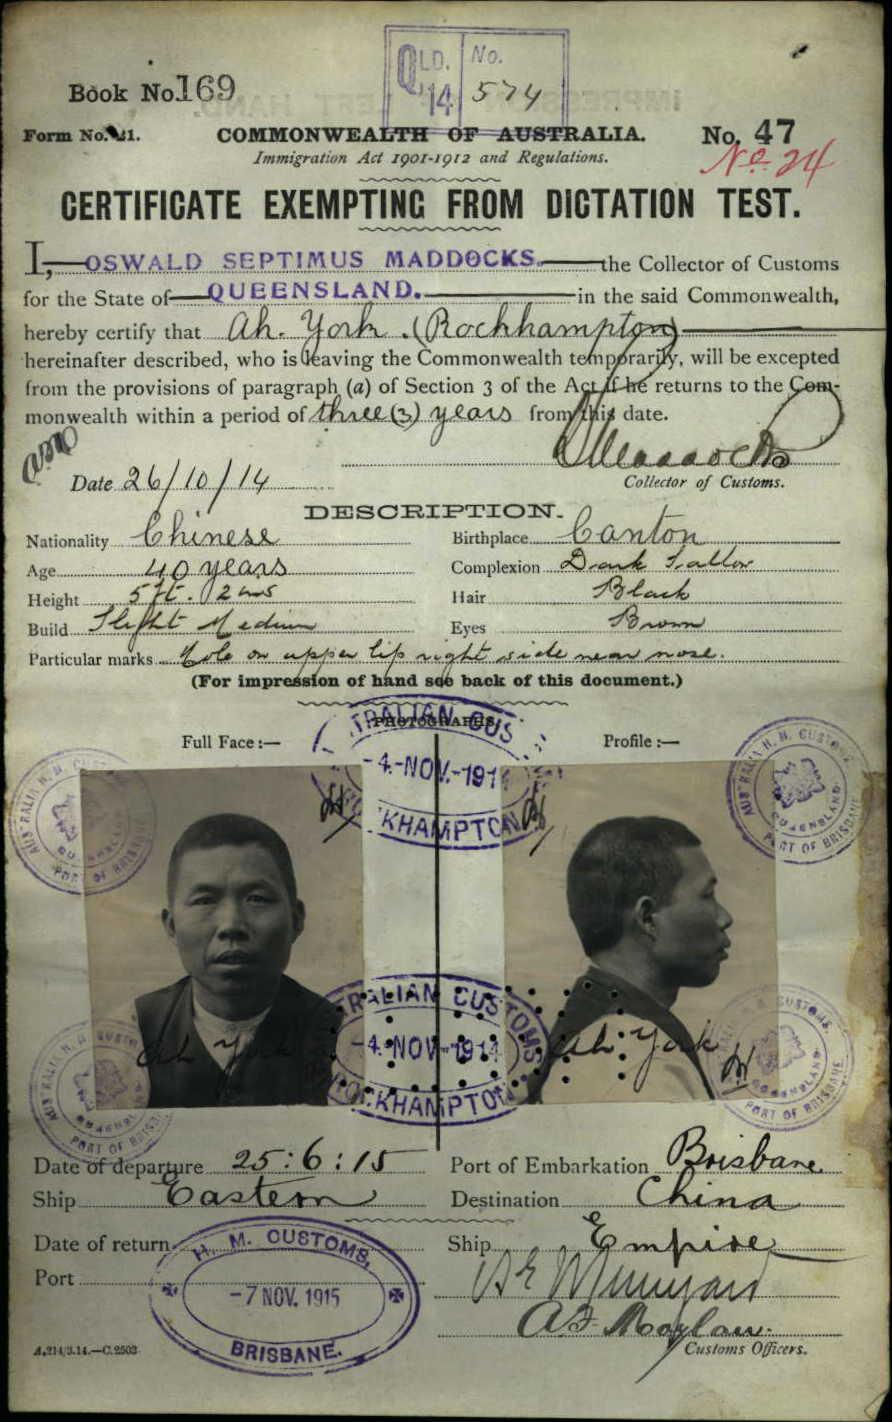 QLD. No.
'14 574
Book No. 169
Form No. 21. COMMONWEALTH OF AUSTRALIA. No. 47
Immigration Act 1901-1912 and Regulations. No. 24
CERTIFICATE EXEMPTING FROM DICTATION TEST.
I, OSWALD SEPTIMUS MADDOCKS. the Collector of Customs
for the State of QUEENSLAND. in the said Commonwealth,
hereby certify that Ah. York. (Rockhampton)
hereinafter described, who is leaving the Commonwealth temporarily, will be excepted
from the provisions of paragraph (a) of Section 3 of the Act if he returns to the Com-
monwealth within a period of three (3) years from this date.
Maddocks
Date 26/10/14 Collector of Customs.
DESCRIPTION.
Nationality Chinese Birthplace Canton
Age 40 years Complexion Dark Sallow
Height 5ft. 2ins Hair Black
Build Slight Medium Eyes Brown
Particular marks Mole on upper lip right side near nose.
(For impression of hand see back of this document.)
PHOTOGRAPHS.
Full Face :— Profile :—
TRALIAN CUS
-4.-NOV.-1914
OCKHAMPTON
AUSTRALIA H. M. CUSTOMS
QUEENSLAND
PORT OF BRISBANE
AUSTRALIA H. M. CUSTOMS
QUEENSLAND
PORT OF BRISBANE
RALIAN CUSTOMS
-4.-NOV.-1914
ROCKHAMPTON
Ah York Ah York
AUSTRALIA H. M. CUSTOMS
QUEENSLAND
PORT OF BRISBANE
CUSTOMS
QUEENSLAND
PORT OF BRISBANE
Date of departure 25:6:15 Port of Embarkation Brisbane.
Ship Eastern Destination China
Date of return Ship Empire
Port
H. M. CUSTOMS,
-7 NOV. 1915
BRISBANE.
A.214/3.14.—C.2503 Customs Officers.